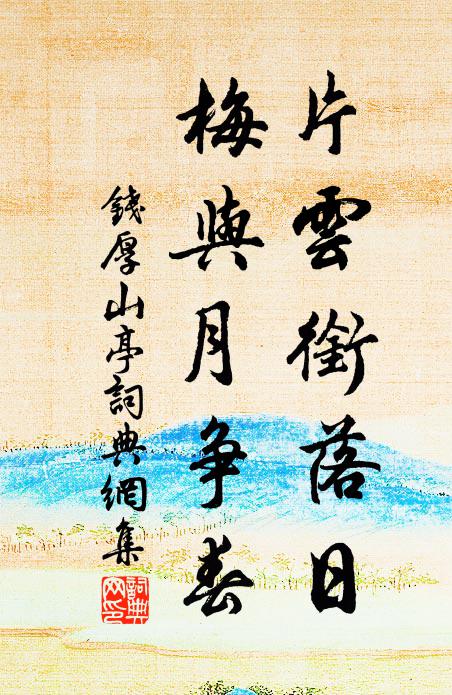 片雲銜落日
梅與月爭春
錢厚山亭詞典網集
詞典網印